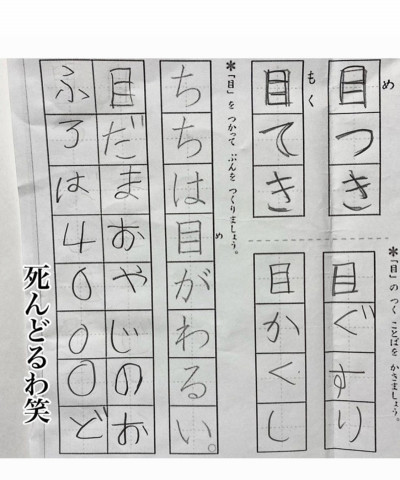 め
目つき
もく
目てき
＊「目」の つく ことばを かきましょう。
目ぐすり
目かくし
＊「目」を つかって ぶんを つくりましょう。
め
ちちは目がわるい。
目だまおやじのお
ふろは400ど
死んどるわ笑